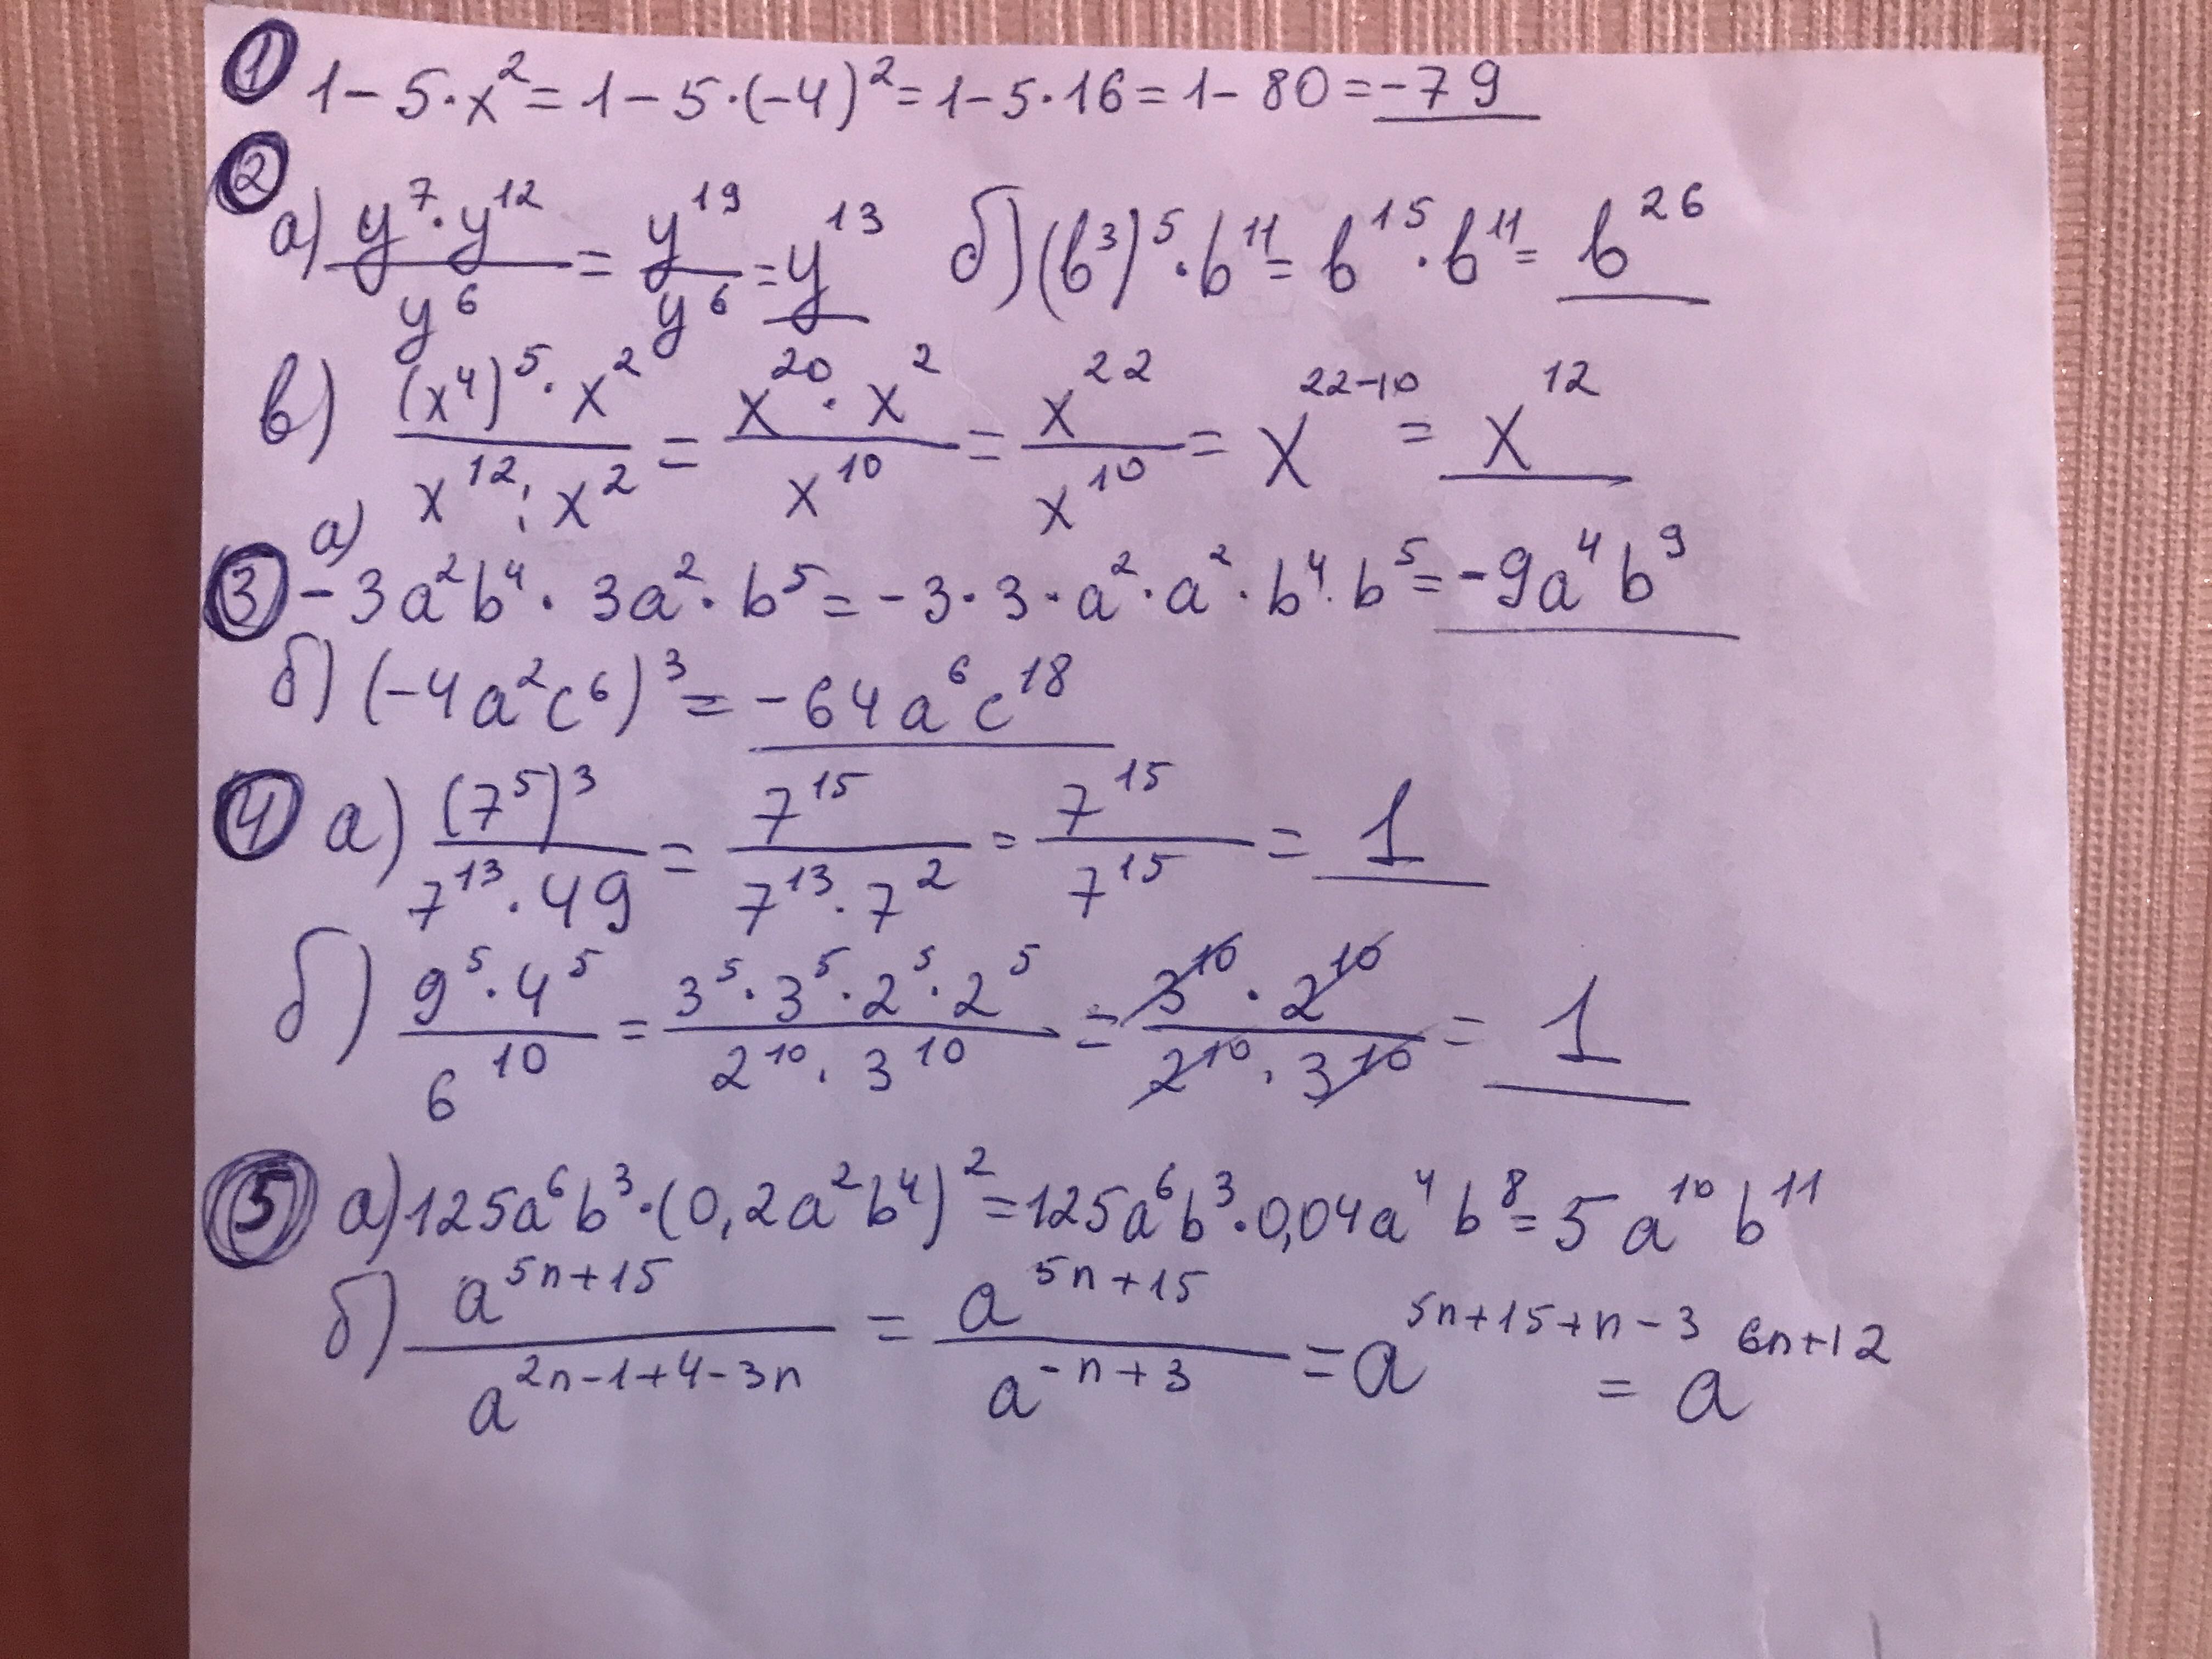 ① 1 – 5·x² = 1 – 5·(–4)² = 1 – 5·16 = 1 – 80 = –79
② а) (y⁷·y¹²)/y⁶ = y¹⁹/y⁶ = y¹³ б) (b³)⁵·b¹¹ = b¹⁵·b¹¹ = b²⁶
в) ((x⁴)⁵·x²)/(x¹² : x²) = (x²⁰·x²)/x¹⁰ = x²²/x¹⁰ = x²²⁻¹⁰ = x¹²
③ а) –3a²b⁴·3a²·b⁵ = –3·3·a²·a²·b⁴·b⁵ = –9a⁴b⁹
б) (–4a²c⁶)³ = –64a⁶c¹⁸
④ а) (7⁵)³/(7¹³·49) = 7¹⁵/(7¹³·7²) = 7¹⁵/7¹⁵ = 1
б) (9⁵·4⁵)/6¹⁰ = (3⁵·3⁵·2⁵·2⁵)/(2¹⁰·3¹⁰) = (3¹⁰·2¹⁰)/(2¹⁰·3¹⁰) = 1
⑤ а) 125a⁶b³·(0,2a²b⁴)² = 125a⁶b³·0,04a⁴b⁸ = 5a¹⁰b¹¹
б) a⁵ⁿ⁺¹⁵/a²ⁿ⁻¹⁺⁴⁻³ⁿ = a⁵ⁿ⁺¹⁵/a⁻ⁿ⁺³ = a⁵ⁿ⁺¹⁵⁺ⁿ⁻³ = a⁶ⁿ⁺¹²